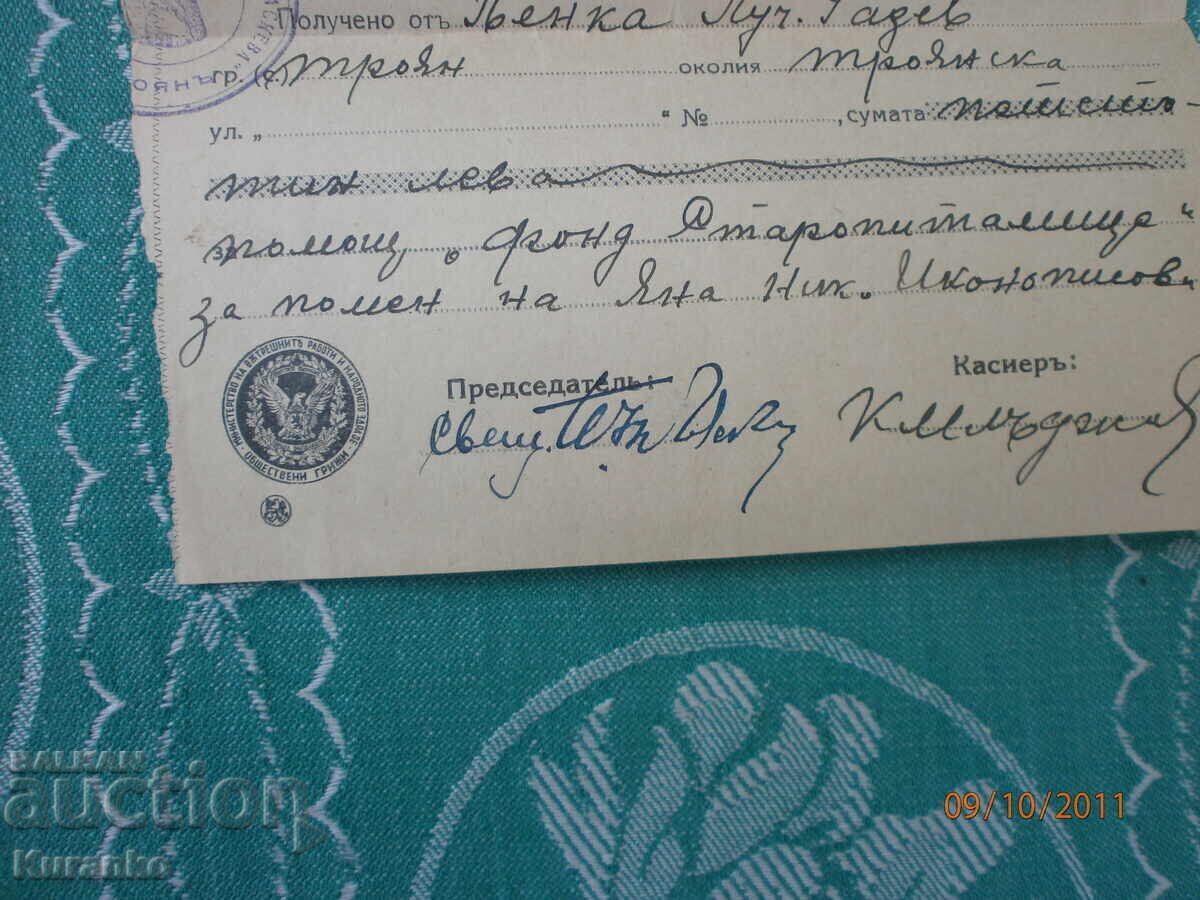 Получено отъ Пенка Луч. Гадев
гр. (с. Троян околия Троянска
ул. „ “ № , сумата петсто-
тин лева
помощ „ фонд Старопиталище“
за помен на Яна Ник. Иконописов
Председатель: Касиеръ:
Свещ.
МИНИСТЕРСТВО НА ВѪТРЕШНИТѢ РАБОТИ И НАРОДНОТО ЗДРАВЕ
ОБЩЕСТВЕНИ ГРИЖИ
BALKAN
auction
Kuranko
09/10/2011